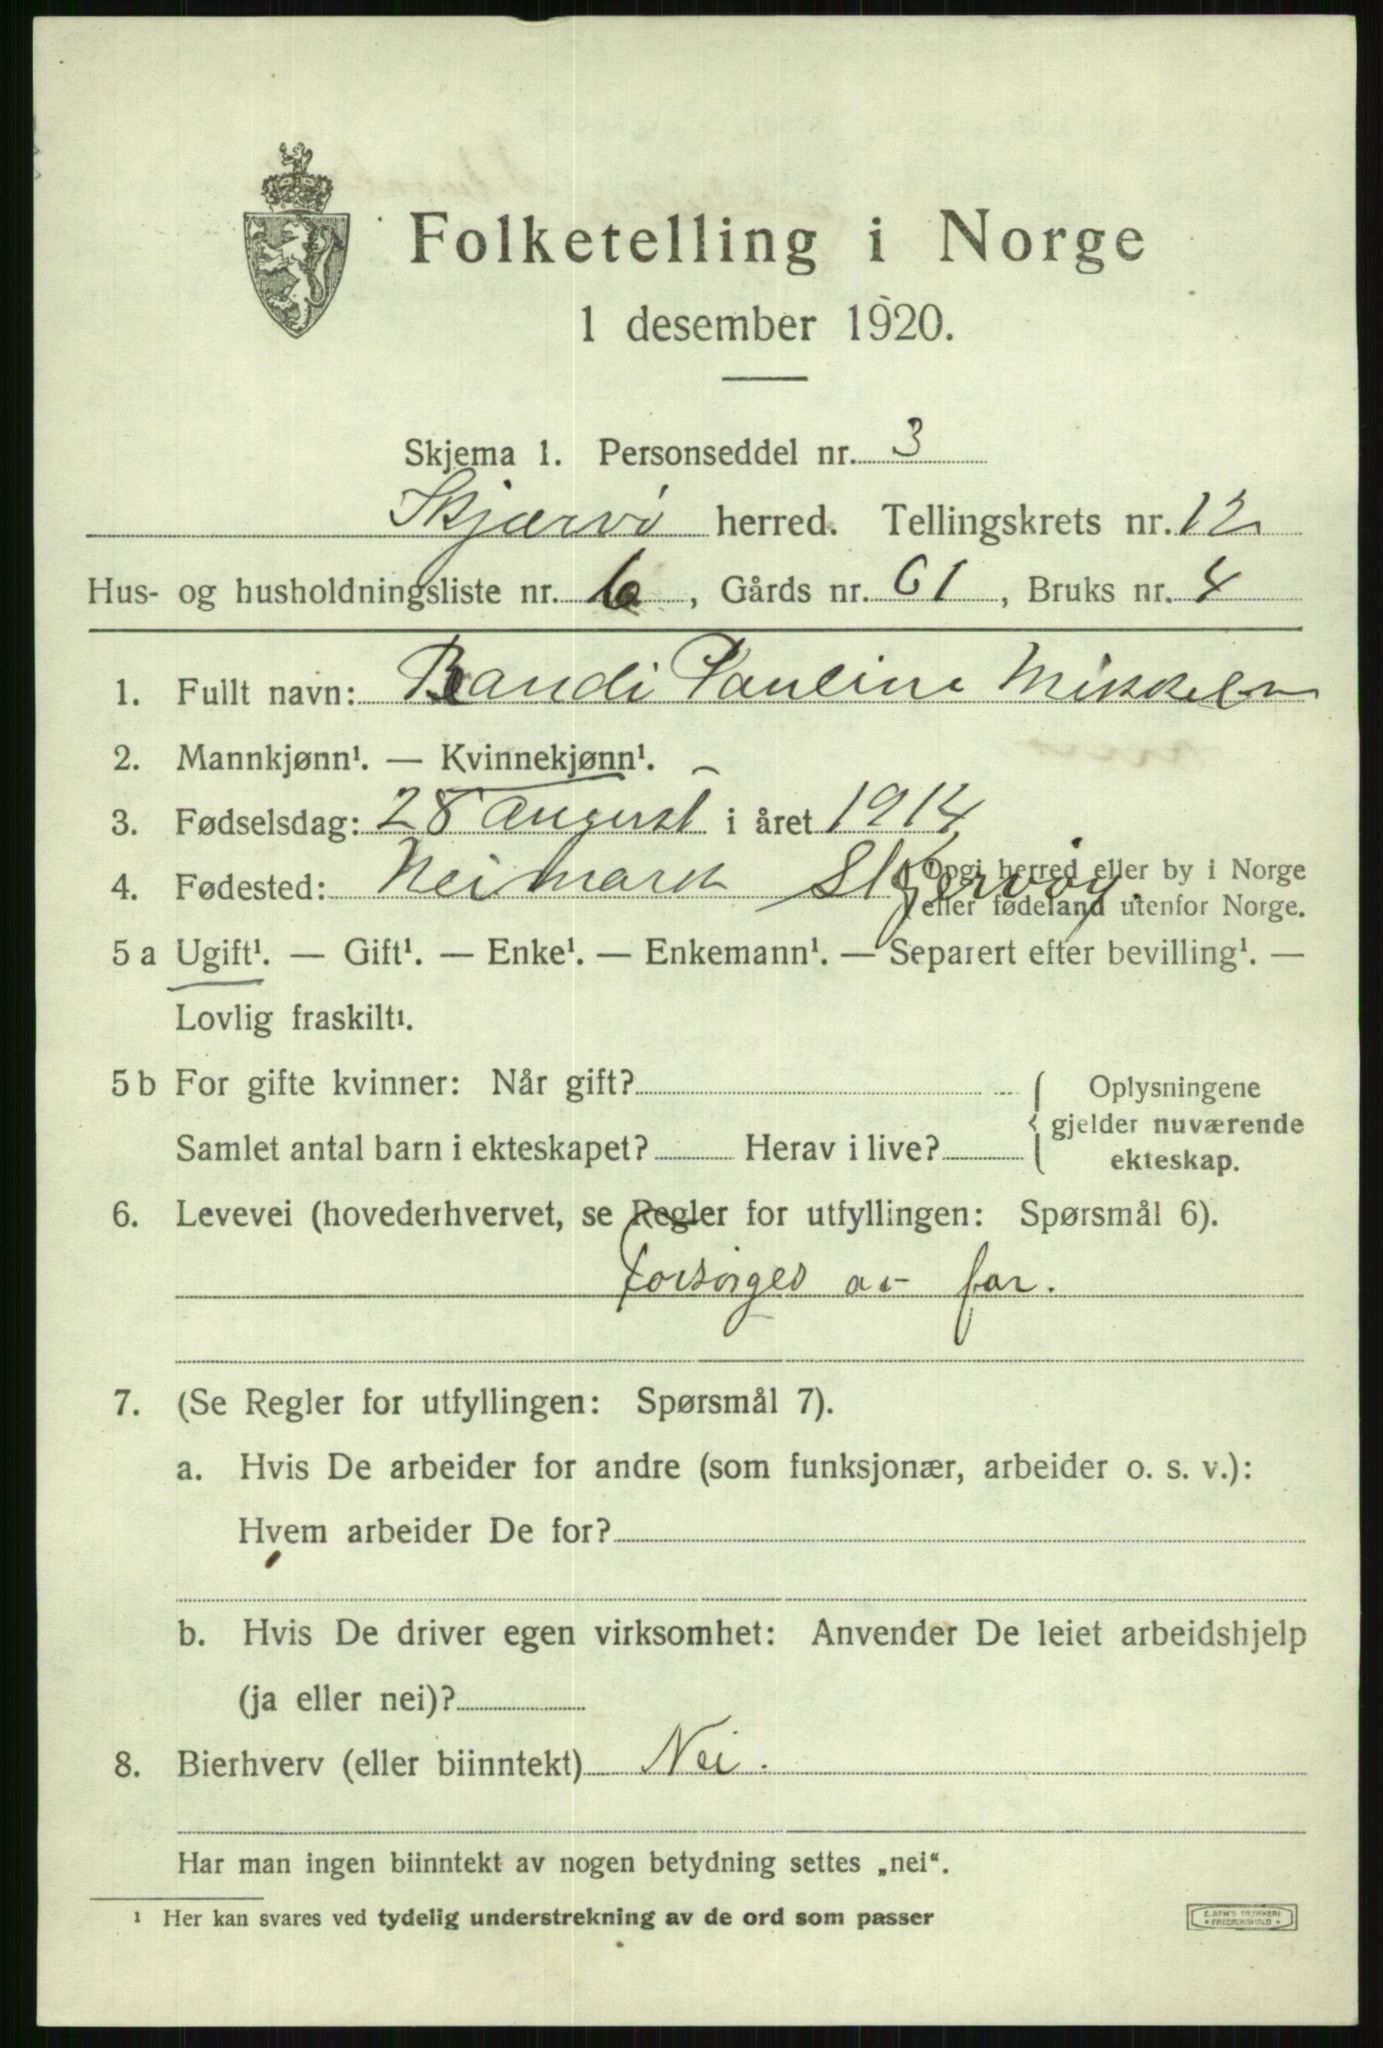 Folketelling i Norge
1 desember 1920.
Skjema 1. Personseddel nr. 3
Skjærvö herred. Tellingskrets nr. 12
Hus- og husholdningsliste nr. 6, Gårds nr. 61, Bruks nr. 4
1. Fullt navn: Randi Pauline Mikkelsen
2. Mannkjønn¹. — Kvinnekjønn¹.
3. Fødselsdag: 28 August i året 1914
4. Fødested: Skjervøy. Opgi herred eller by i Norge
eller fødeland utenfor Norge.
5 a Ugift¹. — Gift¹. — Enke¹. — Enkemann¹. — Separert efter bevilling¹. —
Lovlig fraskilt¹.
5 b For gifte kvinner: Når gift? Oplysningene
gjelder nuværende
Samlet antal barn i ekteskapet? Herav i live?
ekteskap.
6. Levevei (hovederhvervet, se Regler for utfyllingen: Spørsmål 6).
Forsörges av far.
7. (Se Regler for utfyllingen: Spørsmål 7).
a. Hvis De arbeider for andre (som funksjonær, arbeider o. s. v.):
Hvem arbeider De for?
b. Hvis De driver egen virksomhet: Anvender De leiet arbeidshjelp
(ja eller nei)?
8. Bierhverv (eller biinntekt) Nei.
Har man ingen biinntekt av nogen betydning settes „nei“.
¹ Her kan svares ved tydelig understrekning av de ord som passer